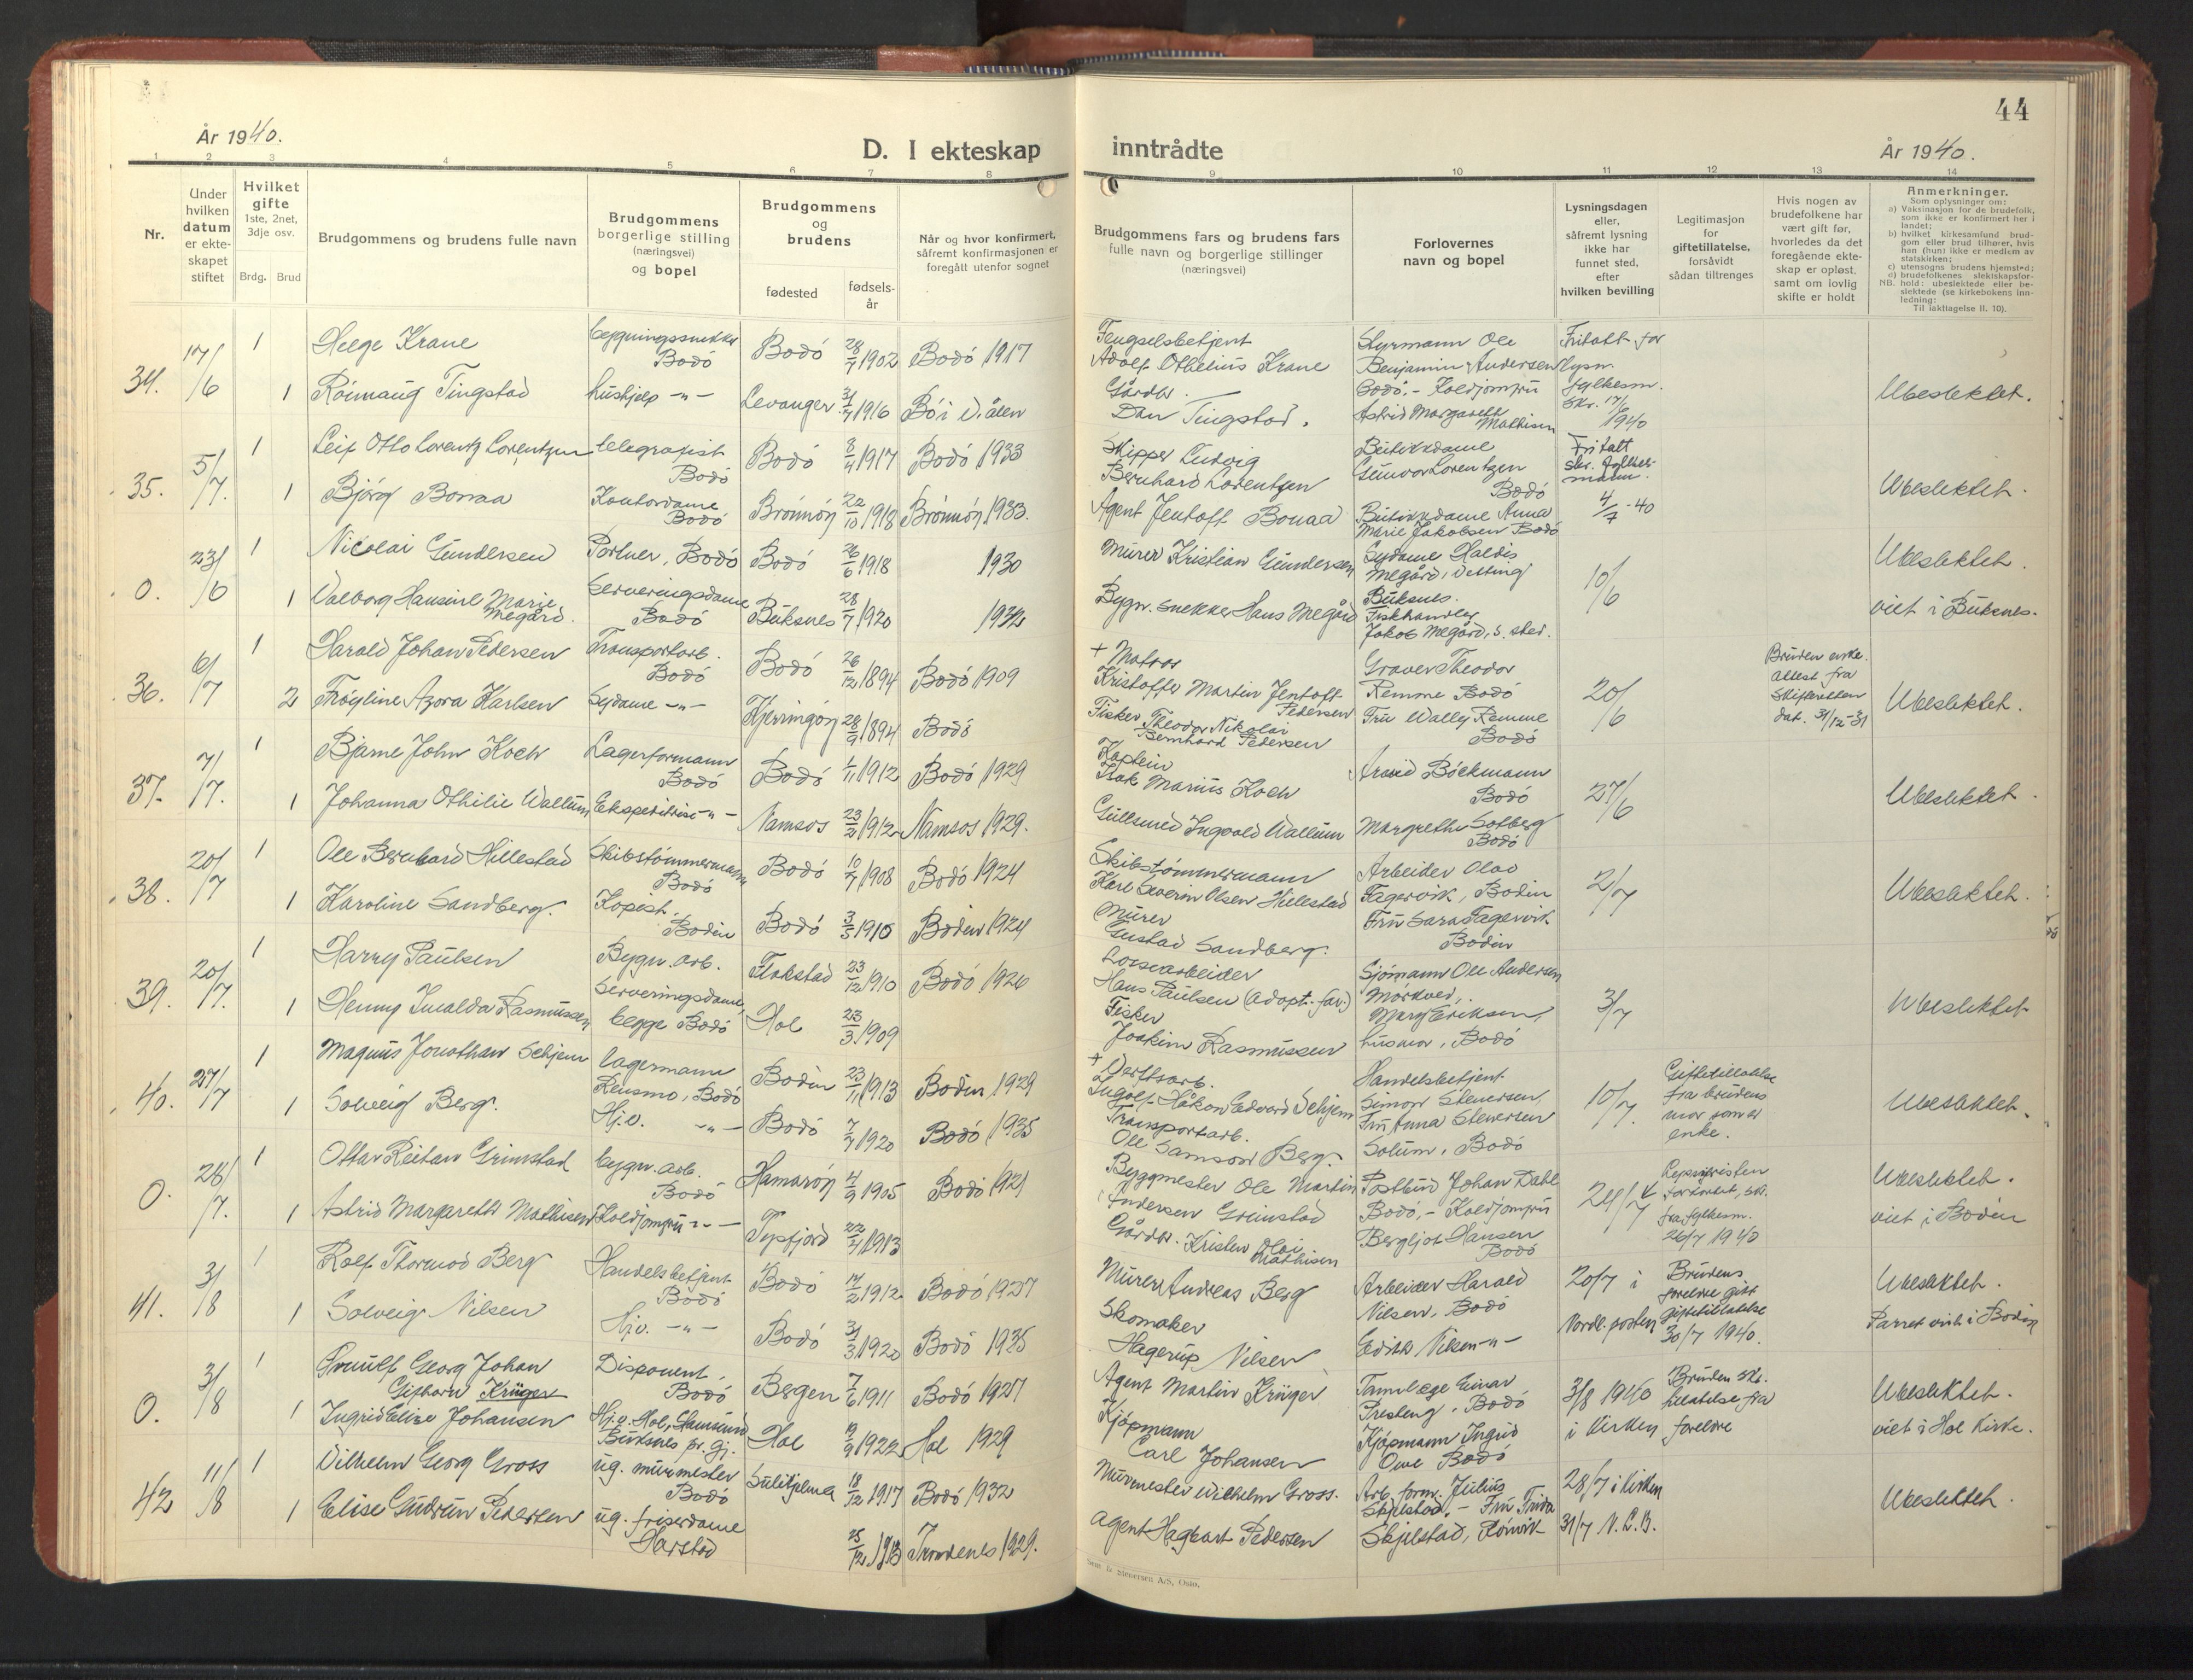 44
År 1940.
D. I ekteskap inntrådte
År 1940.
1 2 3 4 5 6 7 8 9 10 11 12 13 14
Nr.
Under
hvilken
datum
er ekte-
skapet
stiftet
Hvilket
gifte
1ste, 2net,
3dje osv.
Brdg. Brud
Brudgommens og brudens fulle navn
Brudgommens
borgerlige stilling
(næringsvei)
og bopel
Brudgommens
og
brudens
fødested
fødsels-
år
Når og hvor konfirmert,
såfremt konfirmasjonen er
foregått utenfor sognet
Brudgommens fars og brudens fars
fulle navn og borgerlige stillinger
(næringsvei)
Forlovernes
navn og bopel
Lysningsdagen
eller,
såfremt lysning
ikke har
funnet sted,
efter
hvilken bevilling
Legitimasjon
for
giftetillatelse,
forsåvidt
sådan tiltrenges
Hvis nogen av
brudefolkene har
vært gift før,
hvorledes da det
foregående ekte-
skap er opløst,
samt om lovlig
skifte er holdt
Anmerkninger.
Som oplysninger om:
a) Vaksinasjon for de brudefolk,
som ikke er konfirmert her i
landet;
b) hvilket kirkesamfund brud-
gom eller brud tilhører, hvis
han (hun) ikke er medlem av
statskirken;
c) utensogns brudens hjemsted;
d) brudefolkenes slektskapsfor-
NB. hold: ubeslektede eller be-
slektede (se kirkebokens inn-
ledning:
Til iakttagelse II. 10).
34. 17/6
1 Helge Krane
bygningssnekker
Bodö
Bodö 28/7 1902 Bodö 1917
1 Röimaug Tingstad
hushjelp -"-
Levanger 31/7 1916 Bö i V.ålen
Fengselsbetjent
Adolf Othelius Krane
Gårdbr.
Dan Tingstad.
Styrmann Ole
Benjamin Andersen
Bodö. - Koldjomfru
Astrid Margareth
Mathisen
Fritatt for
lysn.
fylkesm.
skr. 17/6
1940
Ubeslektet.
35. 5/7.
1 Leif Otto Lorentz Lorentzen
telegrafist
Bodö
Bodö 8/4 1917 Bodö 1933
1 Björg Bonaa
Kontordame
Bodö
Brönnöy 22/10 1918 Brönnöy 1933.
Skipper Ludvig
Bernhard Lorentzen
Agent Jentoft Bonaa
Butikkdame
Gunvor Lorentzen
Bodö
Butikkdame Anna
Marie Jakobsen Bodö
Fritatt
skr. fylkes-
mann.
4/7 - 40
Ubeslektet.
0. 23/6
1 Nicolai Gundersen
Portner, Bodö
Bodö 26/6 1918 1930
1 Valborg Hansine Marie
Megård.
Serveringsdame
Bodö
Buksnes 28/7 1920 1934
Murer Kristian Gundersen
Bygn. snekker Hans Megård
Sydame Haldis
Megård,
Buksnes.
Fiskhandler
Jakob Megård, s. sted.
10/6
Ubeslektet.
viet i Buksnes.
36. 6/7
1 Harald Johan Pedersen
Transportarb.
Bodö
Bodö 26/12 1894 Bodö 1909
2 Fröyline Azora Karlsen
Sydame -"-
Kjerringöy 28/9 1894 Bodö
+ Matros
Kristoffer Martin Jentoft
Pedersen
Fisker Theodor Nikolai
Bernhard Pedersen
Graver Theodor
Remme Bodö
Fru Wally Remme
Bodö
20/6
Bruden enke.
attest fra
Skifteretten
dat. 31/12-31
Ubeslektet.
37. 7/7.
1 Bjarne John Koch
Lagerformann
Bodö
Bodö 1/11 1912 Bodö 1929
1 Johanna Othilie Wallum
Ekspeditrise -"-
Namsos 23/2 1912 Namsos 1929.
Kaptein
Isak Marius Koch
Gullsmed Ingvald Wallum
Arvid Böckmann
Bodö
Margrethe Solberg
Bodö
27/6
Ubeslektet.
38. 20/7
1 Ole Bernhard Hillestad
Skibstömmermann
Bodö
Bodö 10/7 1908 Bodö 1924
1 Karoline Sandberg.
Kopist.
Bodin
Bodö 3/5 1910 Bodin 1924
Skibstömmermann
Karl Severin Olsen Hillestad
Murer
Gustad Sandberg.
Arbeider Olav
Fagervik, Bodin
Fru Sara Fagervik
Bodin
2/7
Ubeslektet.
39. 20/7.
1 Harry Paulsen
Bygn. arb.
Flakstad 23/12 1910 Bodö 1926
1 Henny Imalda Rasmussen
Serveringsdame,
begge Bodö
Hol 23/3 1909
Losearbeider
Hans Paulsen (adopt. far.)
Fisker
Joakim Rasmussen
Sjömann Ole Andersen
Mörkved,
Mary Eriksen,
husmor, Bodö
3/7
Ubeslektet
40. 27/7
1 Magnus Jonathan Schjem
lagermann
Rensmo, Bodö
Bodin 23/11 1913 Bodin 1929
1 Solveig Berg.
Hj.v. -"-
Bodö 7/7 1920 Bodö 1935
+ Verftsarb.
Ingolf Håkon Edvard Schjem
Transportarb.
Ole Samson Berg.
Handelsbetjent
Simon Stenersen,
Fru Anna Stenersen
Solum, Bodö
10/7.
Giftetillatelse
fra brudens
mor som er
enke.
Ubeslektet.
0. 26/7.
1 Ottar Reitan Grimstad
bygn. arb.
Bodö
Hamaröy 4/9 1905 Bodö 1921
1 Astrid Margareth Mathisen
Koldjomfru -"-
Tysfjord 22/4 1913
Byggmester Ole Martin
Andersen Grimstad
Gårdbr. Kristen Olai
Mathisen
Postbud Johan Dahl
Bodö, - Koldjomfru
Bergljot Hansen
Bodö
24/7
Lysngsfristen
forkortet, skr.
fra fylkesm.
26/7 1940
Ubeslektet.
viet i Bodin
41. 3/8
1 Rolf Thormod Berg
Handelsbetjent
Bodö
Bodö 14/2 1912 Bodö 1927
1 Solveig Nilsen
Hj.v. -"-
Bodö 31/3 1920 Bodö 1935
Murer Andreas Berg
Skomaker
Hagerup Nilsen
Arbeider Harald
Nilsen, Bodö
Edith Nilsen -"-
20/7 i
Nordl.posten
Brudens
foreldre gitt
giftetillatelse
30/7 1940.
Ubeslektet.
Parret viet i Bodin
0. 3/8
1 Georg Johan
Githorn Krüger
Disponent,
Bodö
Bergen 7/6 1911 Bodö 1927
1 Ingrid Elise Johansen
Hj.v. Hol, Stamsund
Buksnes pr. gj.
Hol 19/9 1922 Hol 1929
Agent Martin Krüger
Kjöpmann
Carl Johansen
Tannlæge Einar
Presteng, Bodö
Kjöpmann Ingrid
Owe Bodö
3/8 1940
i Kirken
Bruden skr.
tillatelse fra
foreldre
Ubeslektet.
viet i Hol Kirke.
42 11/8
1 Vilhelm Georg Gross
ug. murmester
Bodö
Sulitjelma 18/12 1917 Bodö 1932
1 Elise Gudrun Pedersen
ug. friserdame
Harstad
25/12 1913 Trondenes 1929.
Murmester Wilhelm Gross.
Agent Hagbart Pedersen
Arb. form. Julius
Skjelstad. - Fru Frida
Skjelstad, Rönvik
28/7 i kirken
31/7 N.L.B.
Ubeslektet.
Sem & Stenersen A/S, Oslo.